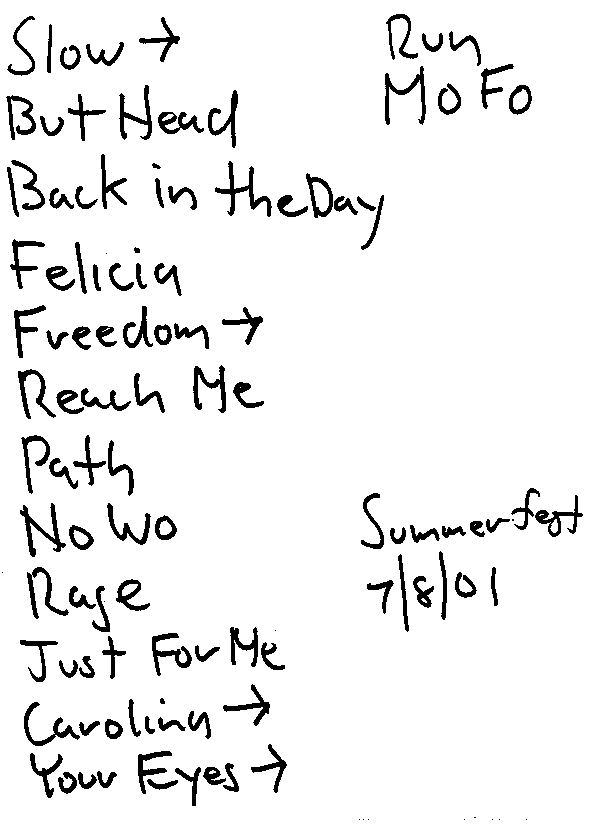 Slow →
But Head
Back in the Day
Felicia
Freedom →
Reach Me
Path
No Wo
Rage
Just For Me
Carolina →
Your Eyes →
Run
MoFo
Summerfest
7/8/01